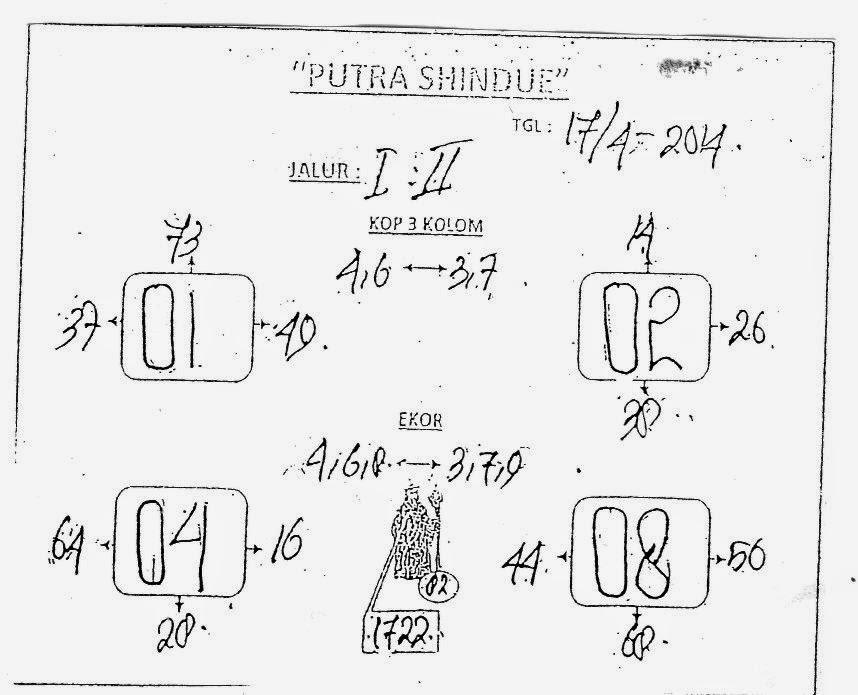 "PUTRA SHINDUE"
TGL : 17/4-2014.
JALUR : I : II
KOP 3 KOLOM
4,6 ↔ 3,7
73
37 01 49.
14
02 26
38
EKOR
4,6,8 ↔ 3,7,9
64 04 16
28.
44 08 56
68.
02
1722